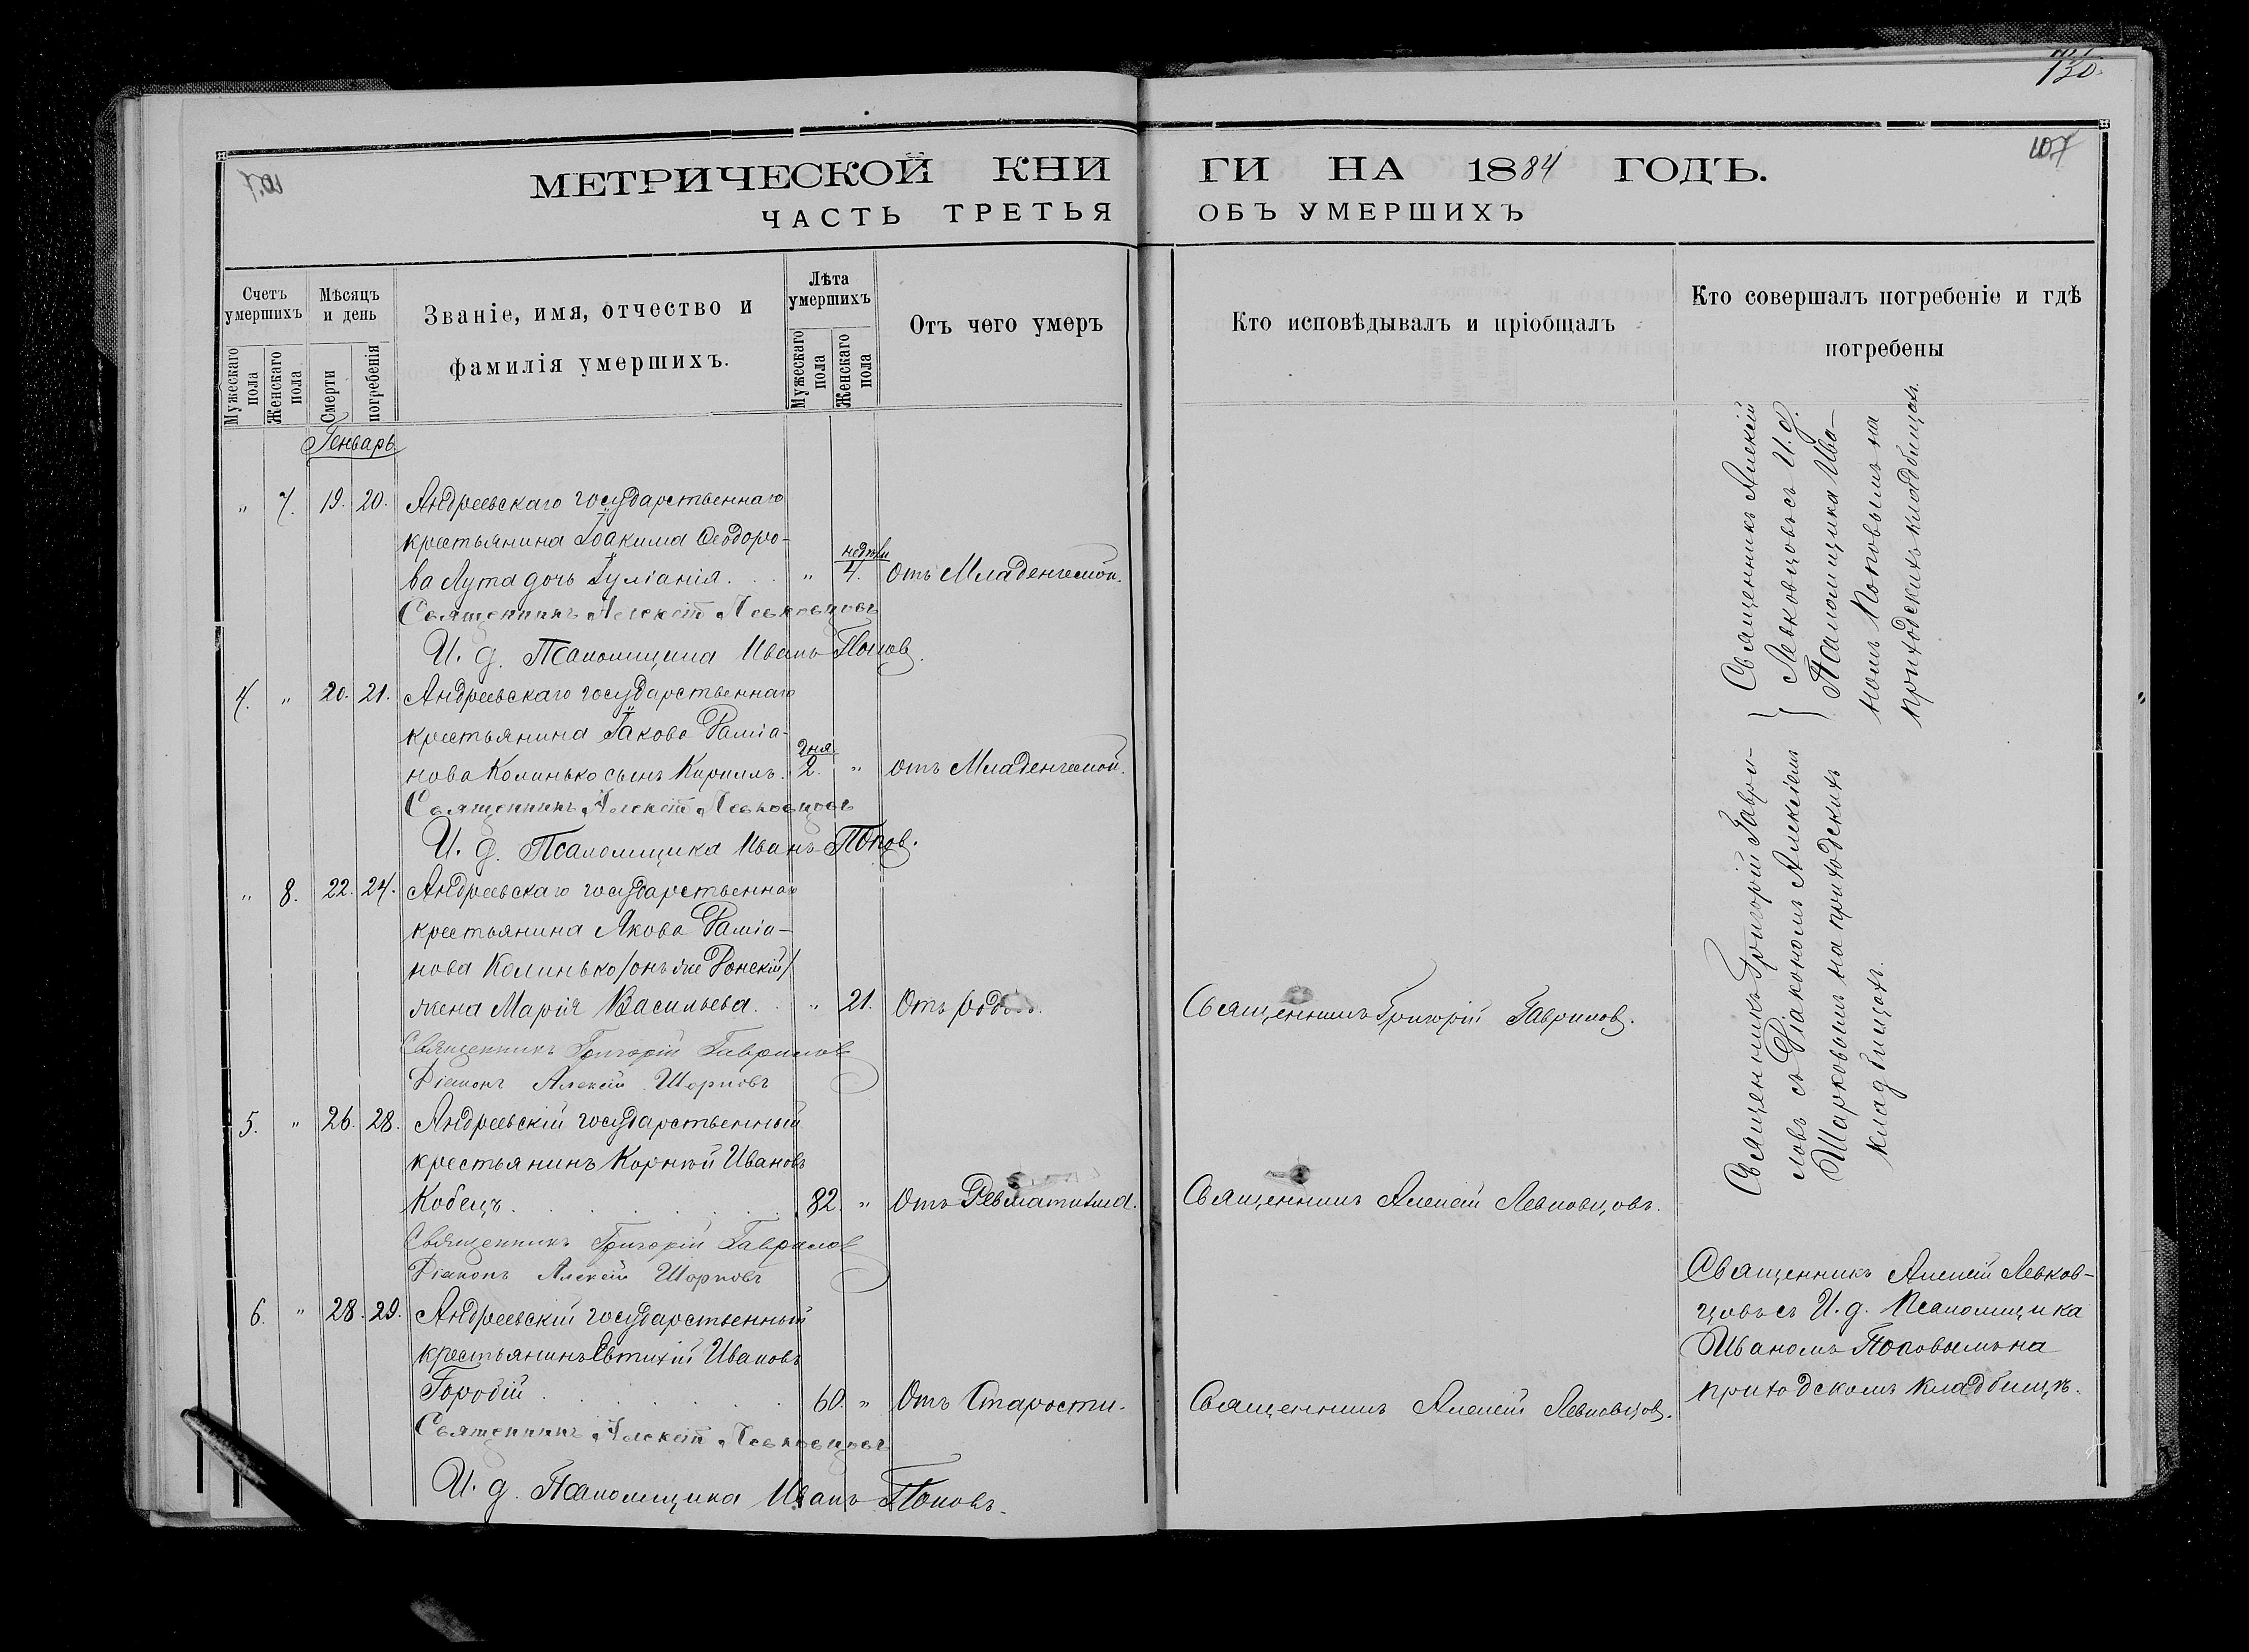 730.
107
МЕТРИЧЕСКОЙ КНИГИ НА 1884 ГОДЪ.
ЧАСТЬ ТРЕТЬЯ ОБЪ УМЕРШИХЪ
Счетъ умершихъ
Мужескаго пола
Женскаго пола
Мѣсяцъ и день
Смерти
погребенія
Званіе, имя, отчество и
фамилія умершихъ.
Лѣта умершихъ
Мужескаго пола
Женскаго пола
Отъ чего умеръ
Кто исповѣдывалъ и пріобщалъ
Кто совершалъ погребеніе и гдѣ
погребены
Генварь
" 7. 19. 20. Андреевскаго государственнаго
крестьянина Іоакима Ѳеодоро-
ва Лута дочь Іуліанія. " недѣли 4. Отъ Младенческой.
Священникъ Алексій Левковцовъ
И. д. Псаломщика Иванъ Попов.
4. " 20. 21. Андреевскаго государственнаго
крестьянина Іакова Даміа-
нова Колинько сынъ Кириллъ. дня 2. " отъ Младенческой.
Священникъ Алексій Левковцовъ
И. д. Псаломщика Иванъ Попов.
" 8. 22. 24. Андреевскаго государственнаго
крестьянина Якова Даміа-
нова Колинько /онъ же Донскій/
жена Марія Васильева. " 21. Отъ родовъ. Священникъ Григорій Гаврилов.
Священникъ Григорій Гаврилов
Діаконъ Алексій Шорковъ
5. " 26. 28. Андреевскій государственный
крестьянинъ Корнѣй Ивановъ
Кобецъ. 82 " Отъ Ревматизма. Священникъ Алексій Левковцовъ.
Священникъ Григорій Гаврилов
Діаконъ Алексій Шорковъ
6. " 28. 29. Андреевскій государственный
крестьянинъ Евтихій Ивановъ
Городій. 60. " Отъ Старости. Священникъ Алексій Левковцов.
Священникъ Алексій Левковцовъ
И. д. Псаломщика Иванъ Поповъ.
Священникъ Алексій
Левковцовъ съ И. д.
Псаломщика Ива-
номъ Поповымъ на
приходскихъ кладбищахъ.
Священникъ Григорій Гаври-
ловъ съ Діакономъ Алексіемъ
Шорковымъ на приходскихъ
кладбищахъ.
Священникъ Алексій Левков-
цовъ съ И. д. Псаломщика
Иваномъ Поповымъ на
приходскомъ кладбищѣ.